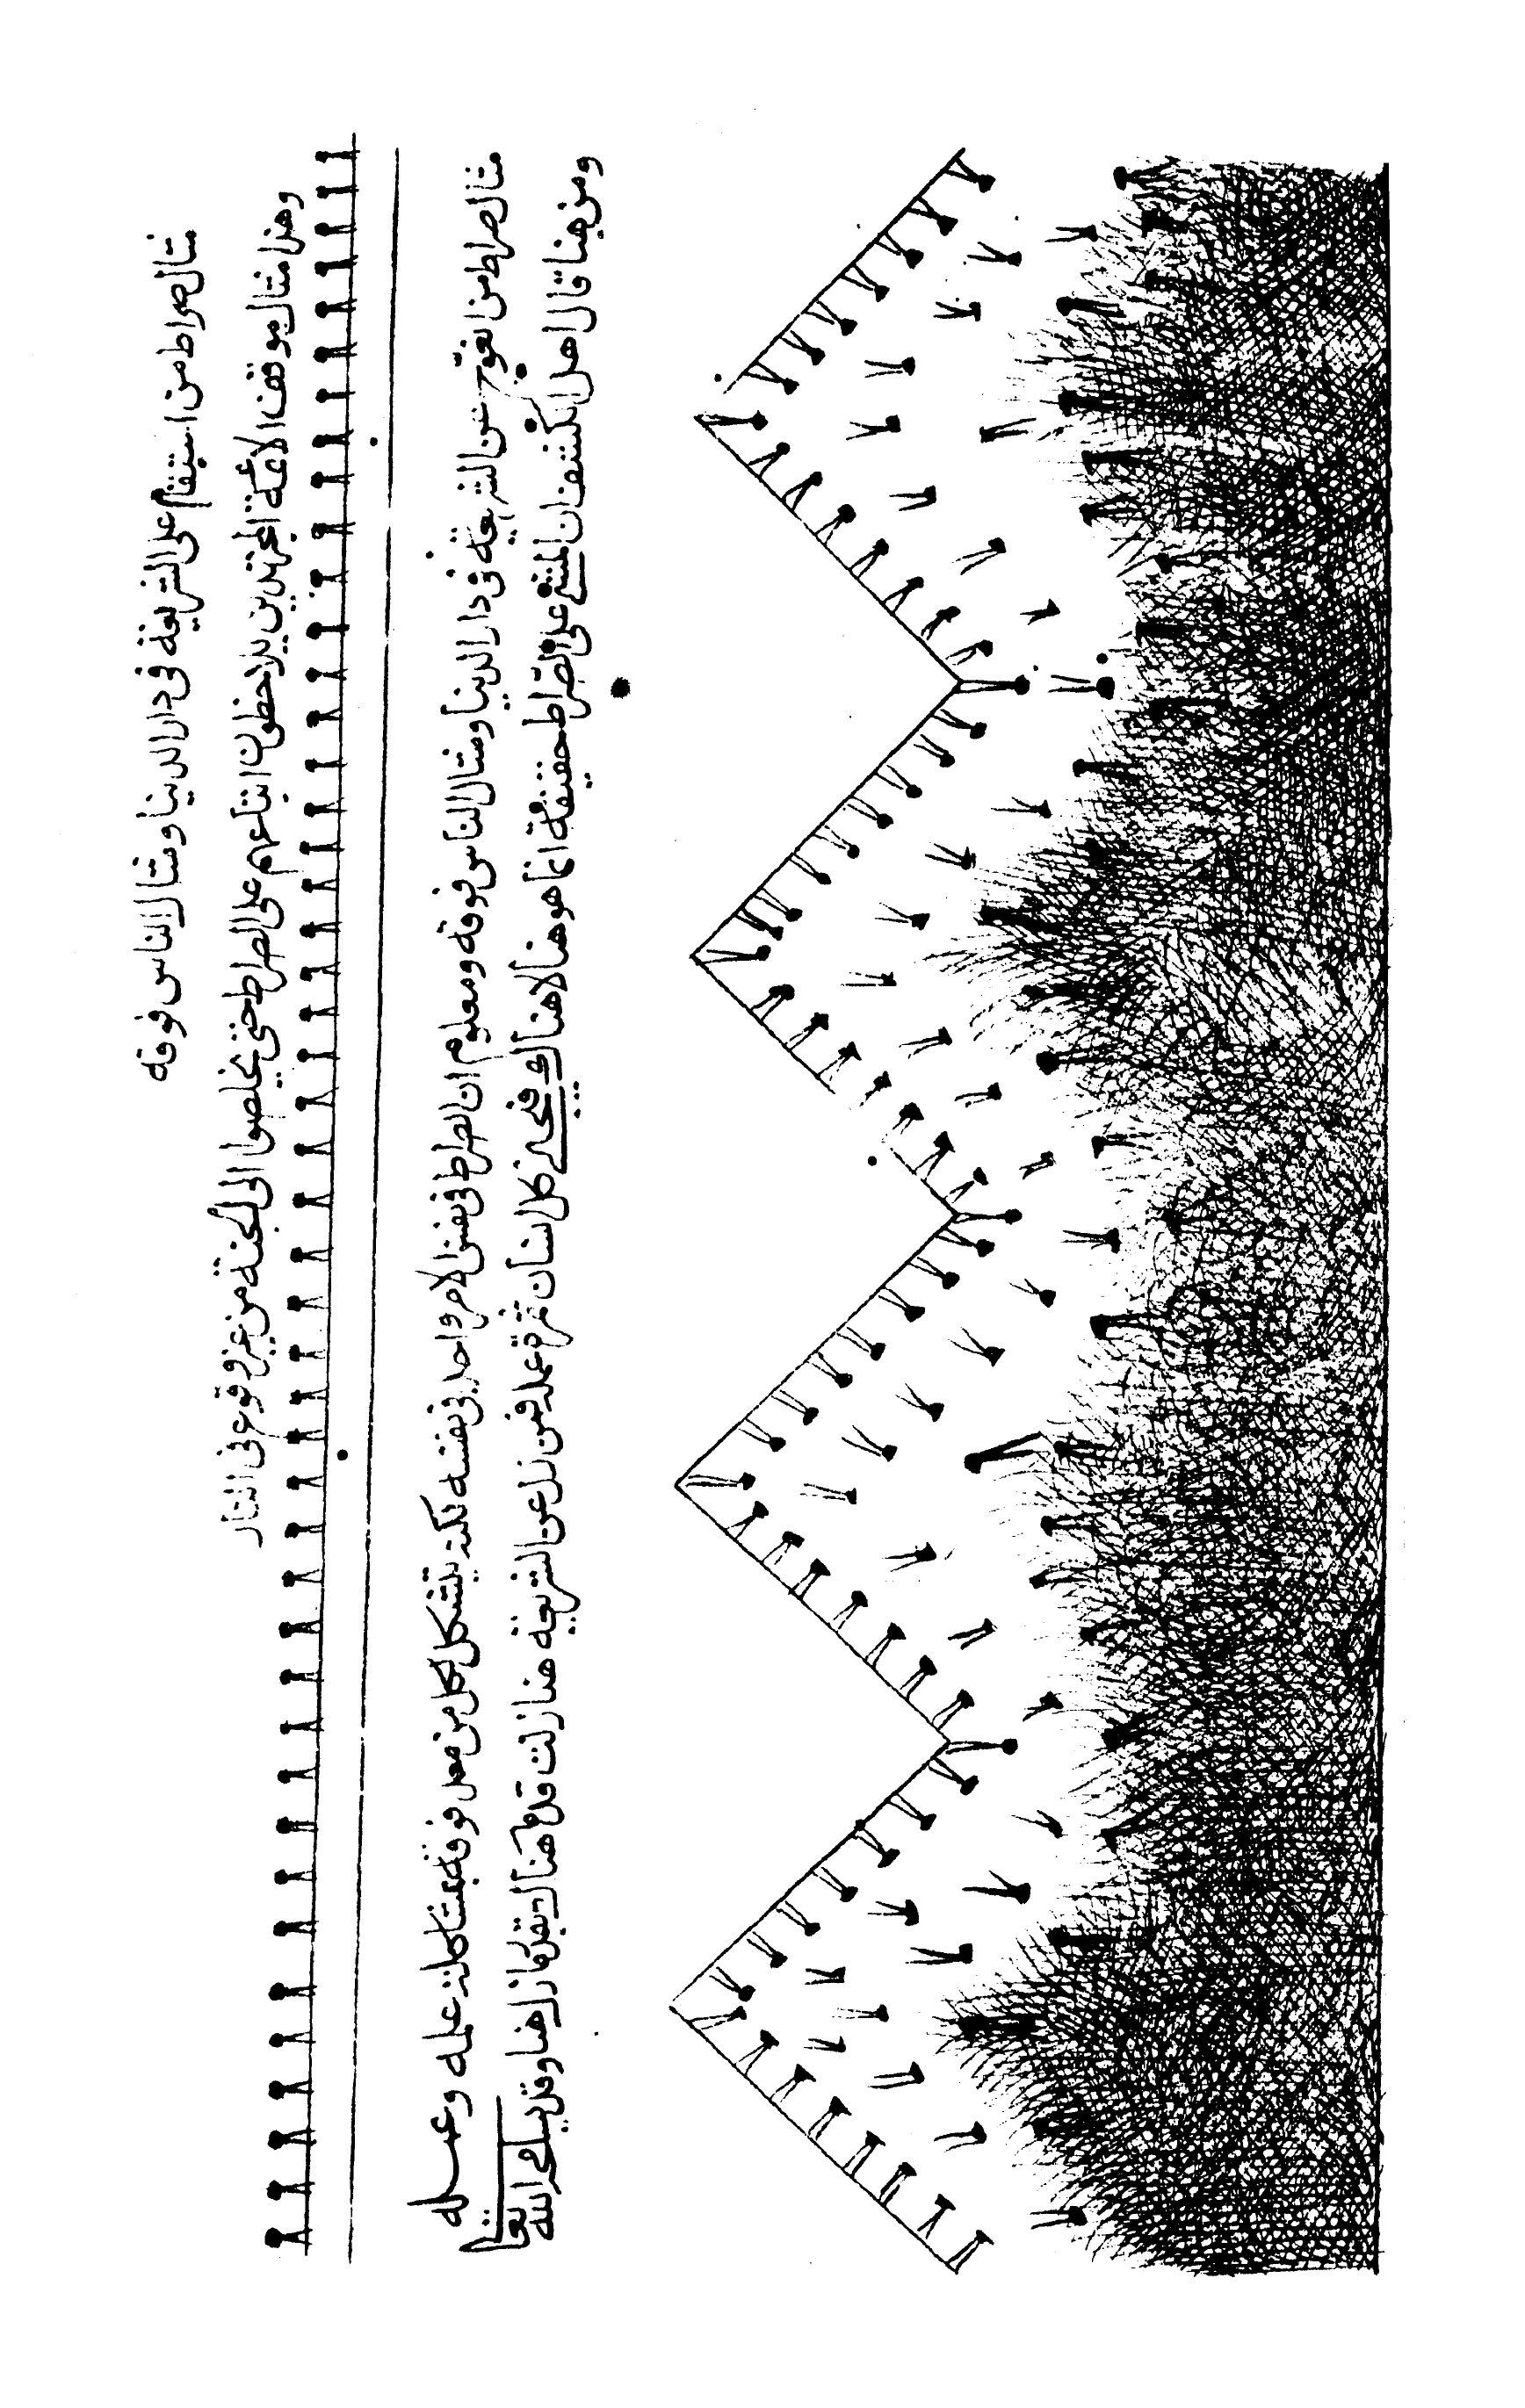 مثال صراط من استقام على الشريعة في دار الدنيا ومثال الناس فوقه
وهذا مثال موقف الائمة المجتهدين يلاحظون اتباعهم على الصراط حتى يخلصوا الى الجنة من غير وقوع في النار
مثال صراط من اعوج عن الشريعة في دار الدنيا ومثال الناس فوقه ومعلوم ان الصراط في نفس الامر واحد في نفسه لكنه يتشكل لكل من فعل فوقه بشاكلة علمه وعمله
ومن هنا قال اهل الكشف ان المشي على الصراط حقيقة انما هو هنا لا هنالك فيجني كل انسان ثمرة عمله فمن زل عن الشريعة هنا زلت قدمه هنالك بقدر ما زل هنا وقد يسامح الله تعالى